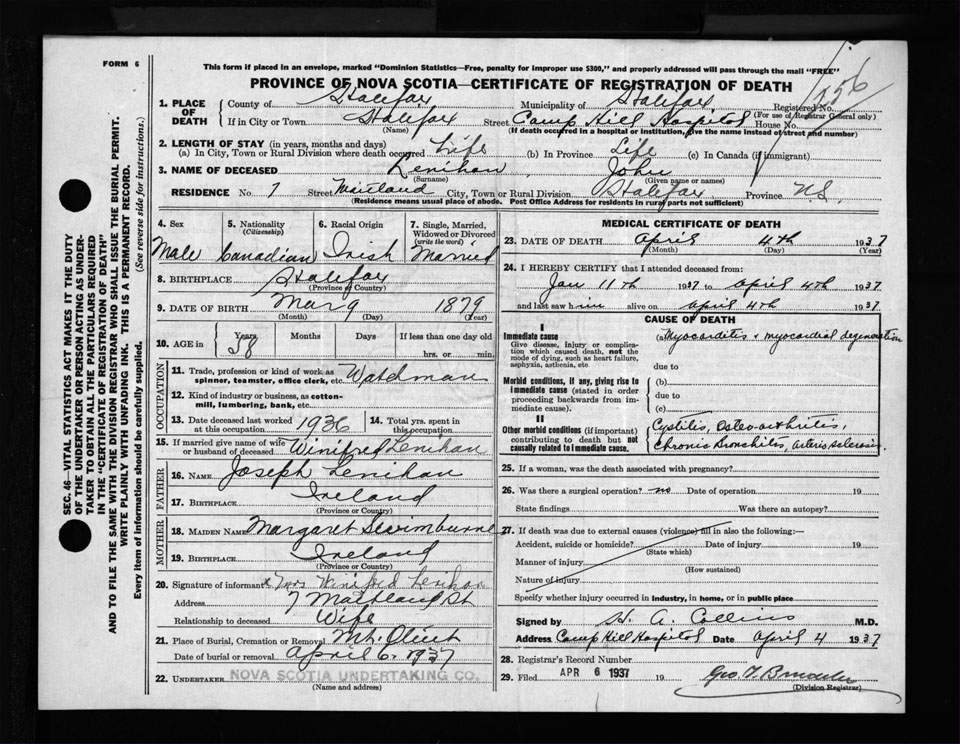 FORM 6
This form if placed in an envelope, marked "Dominion Statistics—Free, penalty for improper use $300," and properly addressed will pass through the mail "FREE"
PROVINCE OF NOVA SCOTIA—CERTIFICATE OF REGISTRATION OF DEATH
1. PLACE OF DEATH
County of Halifax Municipality of Halifax Registered No.
(For use of Registrar General only)
If in City or Town Halifax Street Camp Hill Hospital House No.
(Name) (If death occurred in a hospital or institution, give the name instead of street and number)
2. LENGTH OF STAY (in years, months and days)
(a) In City, Town or Rural Division where death occurred Life (b) In Province Life (c) In Canada (if immigrant)
3. NAME OF DECEASED Lenihan, John
(Surname) (Given name or names)
RESIDENCE No. 7 Street Maitland City, Town or Rural Division Halifax Province N.S.
(Residence means usual place of abode. Post Office Address for residents in rural parts not sufficient)
4. Sex Male
5. Nationality (Citizenship) Canadian
6. Racial Origin Irish
7. Single, Married, Widowed or Divorced (write the word) Married
8. BIRTHPLACE Halifax
(Province or Country)
9. DATE OF BIRTH Mar 9 1879
(Month) (Day) (Year)
10. AGE in Years 58 Months Days If less than one day old
hrs. or min.
OCCUPATION
11. Trade, profession or kind of work as
spinner, teamster, office clerk, etc.
12. Kind of industry or business, as cotton-
mill, lumbering, bank, etc.
13. Date deceased last worked at this occupation 1936
14. Total yrs. spent in this occupation
15. If married give name of wife or husband of deceased Winifred Lenihan
FATHER
16. NAME Joseph Lenihan
17. BIRTHPLACE Ireland
(Province or Country)
MOTHER
18. MAIDEN NAME Margaret
19. BIRTHPLACE Ireland
(Province or Country)
20. Signature of informant x Mrs Winifred Lenihan
Address 7 Maitland St
Relationship to deceased Wife
21. Place of Burial, Cremation or Removal Mt. Olivet
Date of burial or removal April 6. 1937
22. UNDERTAKER NOVA SCOTIA UNDERTAKING CO.
(Name and address)
MEDICAL CERTIFICATE OF DEATH
23. DATE OF DEATH April 4th 1937
(Month) (Day) (Year)
24. I HEREBY CERTIFY that I attended deceased from:
Jan 11th 1937 to April 4th 1937
and last saw him alive on April 4th 1937
CAUSE OF DEATH
I
Immediate cause
Give disease, injury or complica-
tion which caused death, not the
mode of dying, such as heart failure,
asphyxia, asthenia, etc
(a) Myocarditis & myocardial degeneration
due to
Morbid conditions, if any, giving rise to
immediate cause (stated in order
proceeding backwards from im-
mediate cause).
(b)
due to
(c)
II
Other morbid conditions (if important)
contributing to death but not
causally related to immediate cause.
Cystitis, Osteoarthritis,
Chronic Bronchitis, Arteriosclerosis
25. If a woman, was the death associated with pregnancy?
26. Was there a surgical operation? no Date of operation 19
State findings Was there an autopsy?
27. If death was due to external causes (violence) fill in also the following:—
Accident, suicide or homicide? Date of injury 19
(State which)
Manner of injury
(How sustained)
Nature of injury
Specify whether injury occurred in industry, in home, or in public place
Signed by H. A. Collins M.D.
Address Camp Hill Hospital Date April 4 1937
28. Registrar's Record Number
29. Filed APR 6 1937 19
(Division Registrar)
SEC. 46—VITAL STATISTICS ACT MAKES IT THE DUTY
OF THE UNDERTAKER OR PERSON ACTING AS UNDER-
TAKER TO OBTAIN ALL THE PARTICULARS REQUIRED
IN THE "CERTIFICATE OF REGISTRATION OF DEATH"
AND TO FILE THE SAME WITH THE DIVISION REGISTRAR WHO SHALL ISSUE THE BURIAL PERMIT.
WRITE PLAINLY WITH UNFADING INK. THIS IS A PERMANENT RECORD.
Every item of information should be carefully supplied. (See reverse side for instructions.)